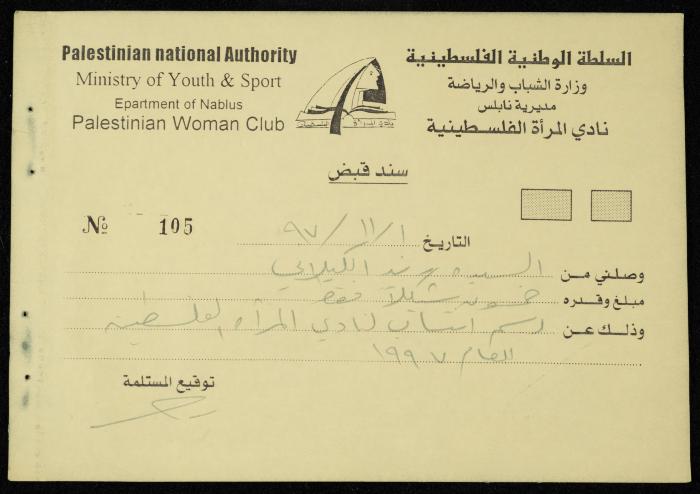 Palestinian national Authority
Ministry of Youth & Sport
Epartment of Nablus
Palestinian Woman Club
السلطة الوطنية الفلسطينية
وزارة الشباب والرياضة
مديرية نابلس
نادي المرأة الفلسطينية
سند قبض
№ 105
التاريخ ١ / ١١ / ٩٧
وصلني من السيده الكيلاني
مبلغ وقدره خمسون شيكلاً فقط
وذلك عن رسم انتساب لنادي المرأه الفلسطينية
العام ١٩٩٧
توقيع المستلمة